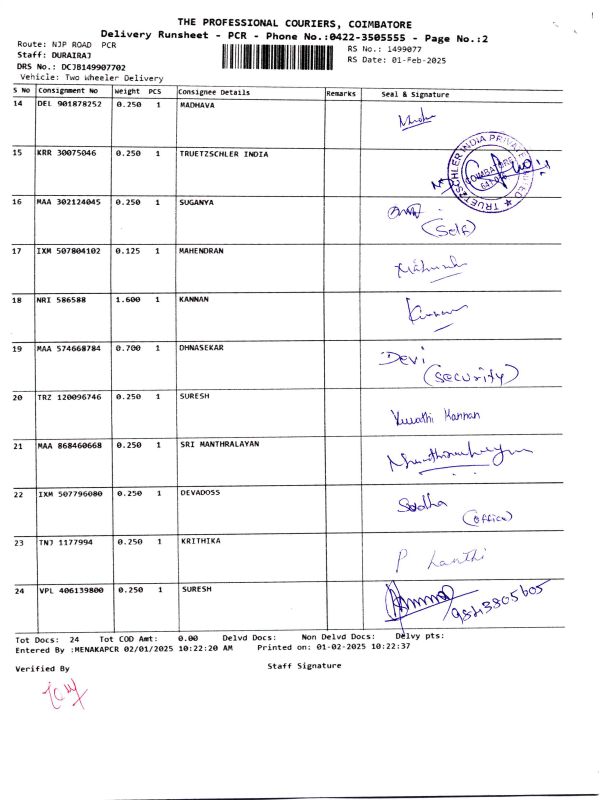 THE PROFESSIONAL COURIERS, COIMBATORE
Delivery Runsheet - PCR - Phone No.:0422-3505555 - Page No.:2
Route: NJP ROAD PCR
Staff: DURAIRAJ
DRS No.: DCJB149907702
Vehicle: Two Wheeler Delivery
RS No.: 1499077
RS Date: 01-Feb-2025
S No Consignment No Weight PCS Consignee Details Remarks Seal & Signature
14 DEL 901878252 0.250 1 MADHAVA
15 KRR 30075046 0.250 1 TRUETZSCHLER INDIA
TRUETZSCHLER INDIA PRIVATE LIMITED
COIMBATORE
16 MAA 302124045 0.250 1 SUGANYA
(Self)
17 IXM 507804102 0.125 1 MAHENDRAN
18 NRI 586588 1.600 1 KANNAN
19 MAA 574668784 0.700 1 DHNASEKAR Devi
(security)
20 TRZ 120096746 0.250 1 SURESH Kannan
21 MAA 868460668 0.250 1 SRI MANTHRALAYAN
22 IXM 507796080 0.250 1 DEVADOSS
(office)
23 TNJ 1177994 0.250 1 KRITHIKA P
24 VPL 406139800 0.250 1 SURESH
Tot Docs: 24 Tot COD Amt: 0.00 Delvd Docs: Non Delvd Docs: Delvy pts:
Entered By :MENAKAPCR 02/01/2025 10:22:20 AM Printed on: 01-02-2025 10:22:37
Verified By Staff Signature